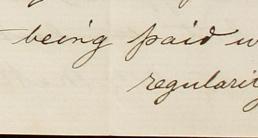 being paid
regularity